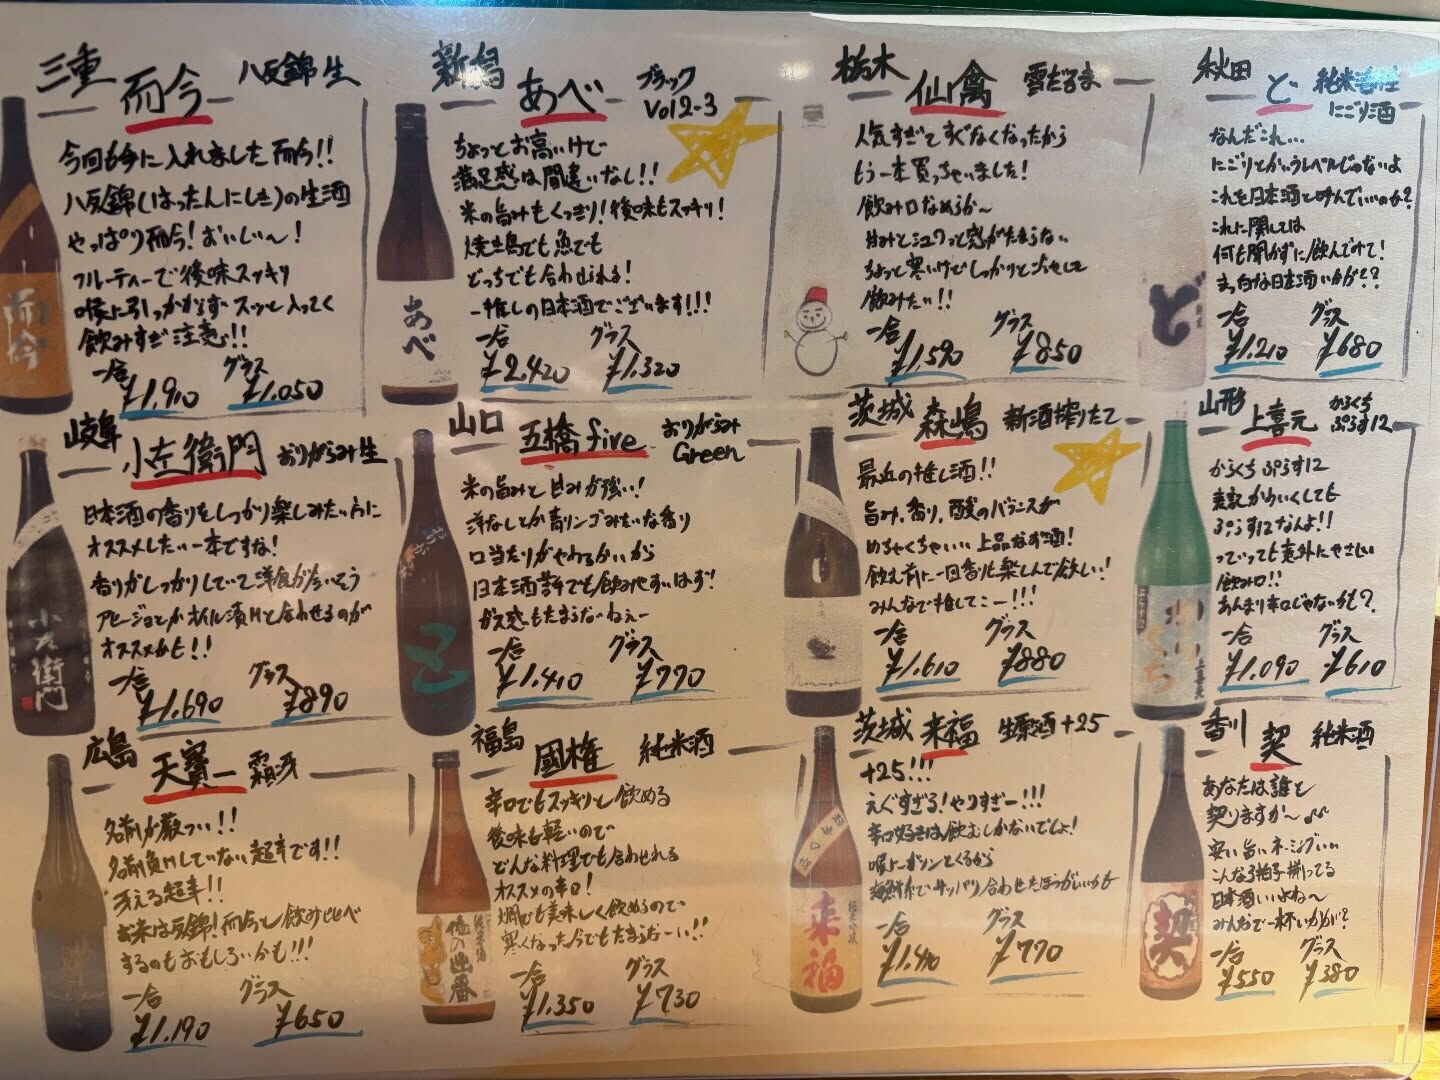 三重
而今
八反錦 生
今回も手に入れました 而今!!
八反錦(はったんにしき)の生酒
やっぱり而今! おいしい〜!
フルーティーで後味スッキリ
喉に引っかからず スッと入ってく
飲みすぎ注意!!
一合
¥1.910
グラス
¥1.050
新潟
あべ
ブラック
Vol2-3
ちょっとお高いけど
満足感は間違いなし!!
米の旨みもくっきり! 後味もスッキリ!
焼き鳥でも魚でも
どっちでも合わせれる!
一推しの日本酒でございます!!!
一合
¥2.420
グラス
¥1.320
栃木
仙禽
雪だるま
人気すぎてすぐなくなったから
もう一本買っちゃいました!
飲み口なめらか〜
甘みとシュワっと感がたまらない
ちょっと寒いけどしっかりと冷やして
飲みたい!!
一合
¥1.590
グラス
¥850
秋田
ど
純米
にごり酒
なんだこれ...
にごりとかいうレベルじゃないよ
これを日本酒と呼んでいいのか?
これに関しては
何も聞かずに飲んでみて!
まっ白な日本酒いかが??
一合
¥1.210
グラス
¥680
岐阜
小左衛門
おりがらみ生
日本酒の香りをしっかり楽しみたい方に
オススメしたい一本ですな!
香りがしっかりしてて洋食が合いそう
アヒージョとかオイル漬けと合わせるのが
オススメかも!!
一合
¥1.690
グラス
¥890
山口
五橋 five
おりがらみ
Green
米の旨みと甘みが強い!
洋なしとか青リンゴみたいな香り
口当たりがやわらかいから
日本酒苦手でも飲みやすいはず!
ガス感もたまらないねぇー
一合
¥1.410
グラス
¥770
茨城
森嶋
新酒搾りたて
最近の推し酒!!
旨み、香り、酸のバランスが
めちゃくちゃいい上品なお酒!
飲む前に一回香りも楽しんで欲しい!
みんなで推してこー!!!
一合
¥1.610
グラス
¥880
山形
上喜元
からくち
ぷらす12
からくちぷらす12
表記かわいくしても
ぷらす12なんよ!!
っていっても意外にやさしい
飲み口!!
あんまり辛口じゃないかも?
一合
¥1.090
グラス
¥610
広島
天寶一
霜冴
名前が厳つい!!
名前負けしていない超辛です!!
冴える超辛!!
お米は八反錦! 而今と飲み比べ
するのもおもしろいかも!!!
一合
¥1.190
グラス
¥650
福島
國権
純米酒
辛口でもスッキリと飲める
後味も軽いので
どんな料理でも合わせれる
オススメの辛口!
燗でも美味しく飲めるので
寒くなった今でもたまらなーい!!
一合
¥1.350
グラス
¥730
茨城
来福
生原酒+25
+25!!!
えぐすぎる! やりすぎー!!!
辛口好きは飲むしかないでしょ!
喉にガツンとくるから
海鮮系でサッパリ合わせたほうがいいかも
一合
グラス
¥770
香川
契
純米酒
あなたは誰と
契りますか〜♪♪
安い旨いネーミングいい
こんな3拍子揃ってる
日本酒いいよね〜
みんなで一杯いかが?
一合
¥550
グラス
¥380